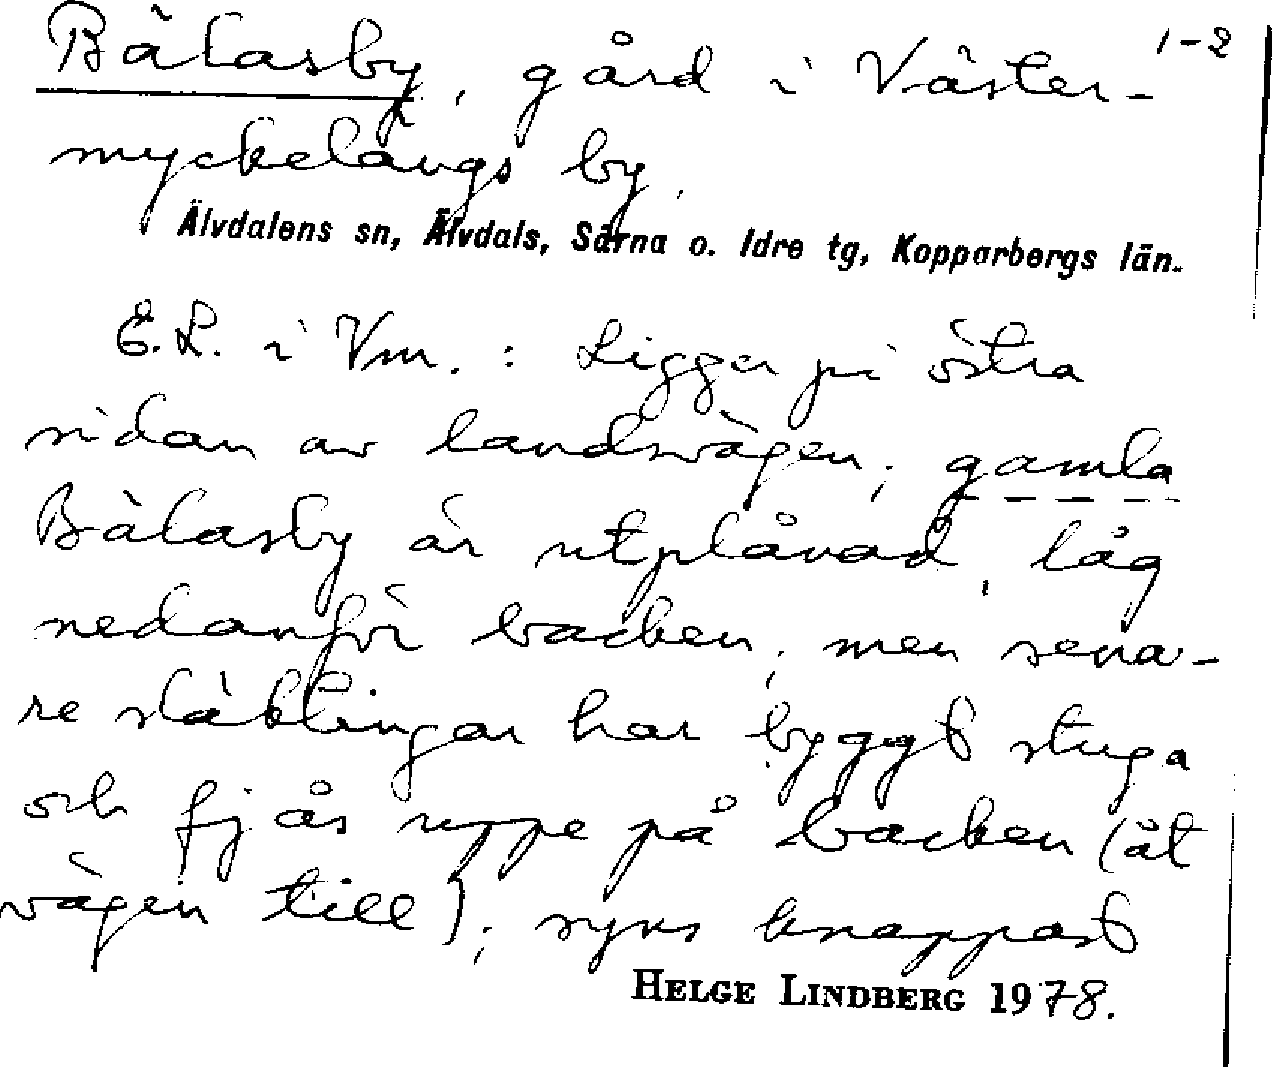 1-2
Bälasby, gård i Väster-
myckelängs by.
Älvdalens sn, Älvdals, Särna o. Idre tg, Kopparbergs län.
E.L. i Vm. : Ligger på östra
sidan av landsvägen; gamla
Bälasby är utplånad, låg
nedanför backen; men sena-
re släktingar har byggt stuga
och fjås uppe på backen (åt
vägen till); syns knappast
HELGE LINDBERG 1978.